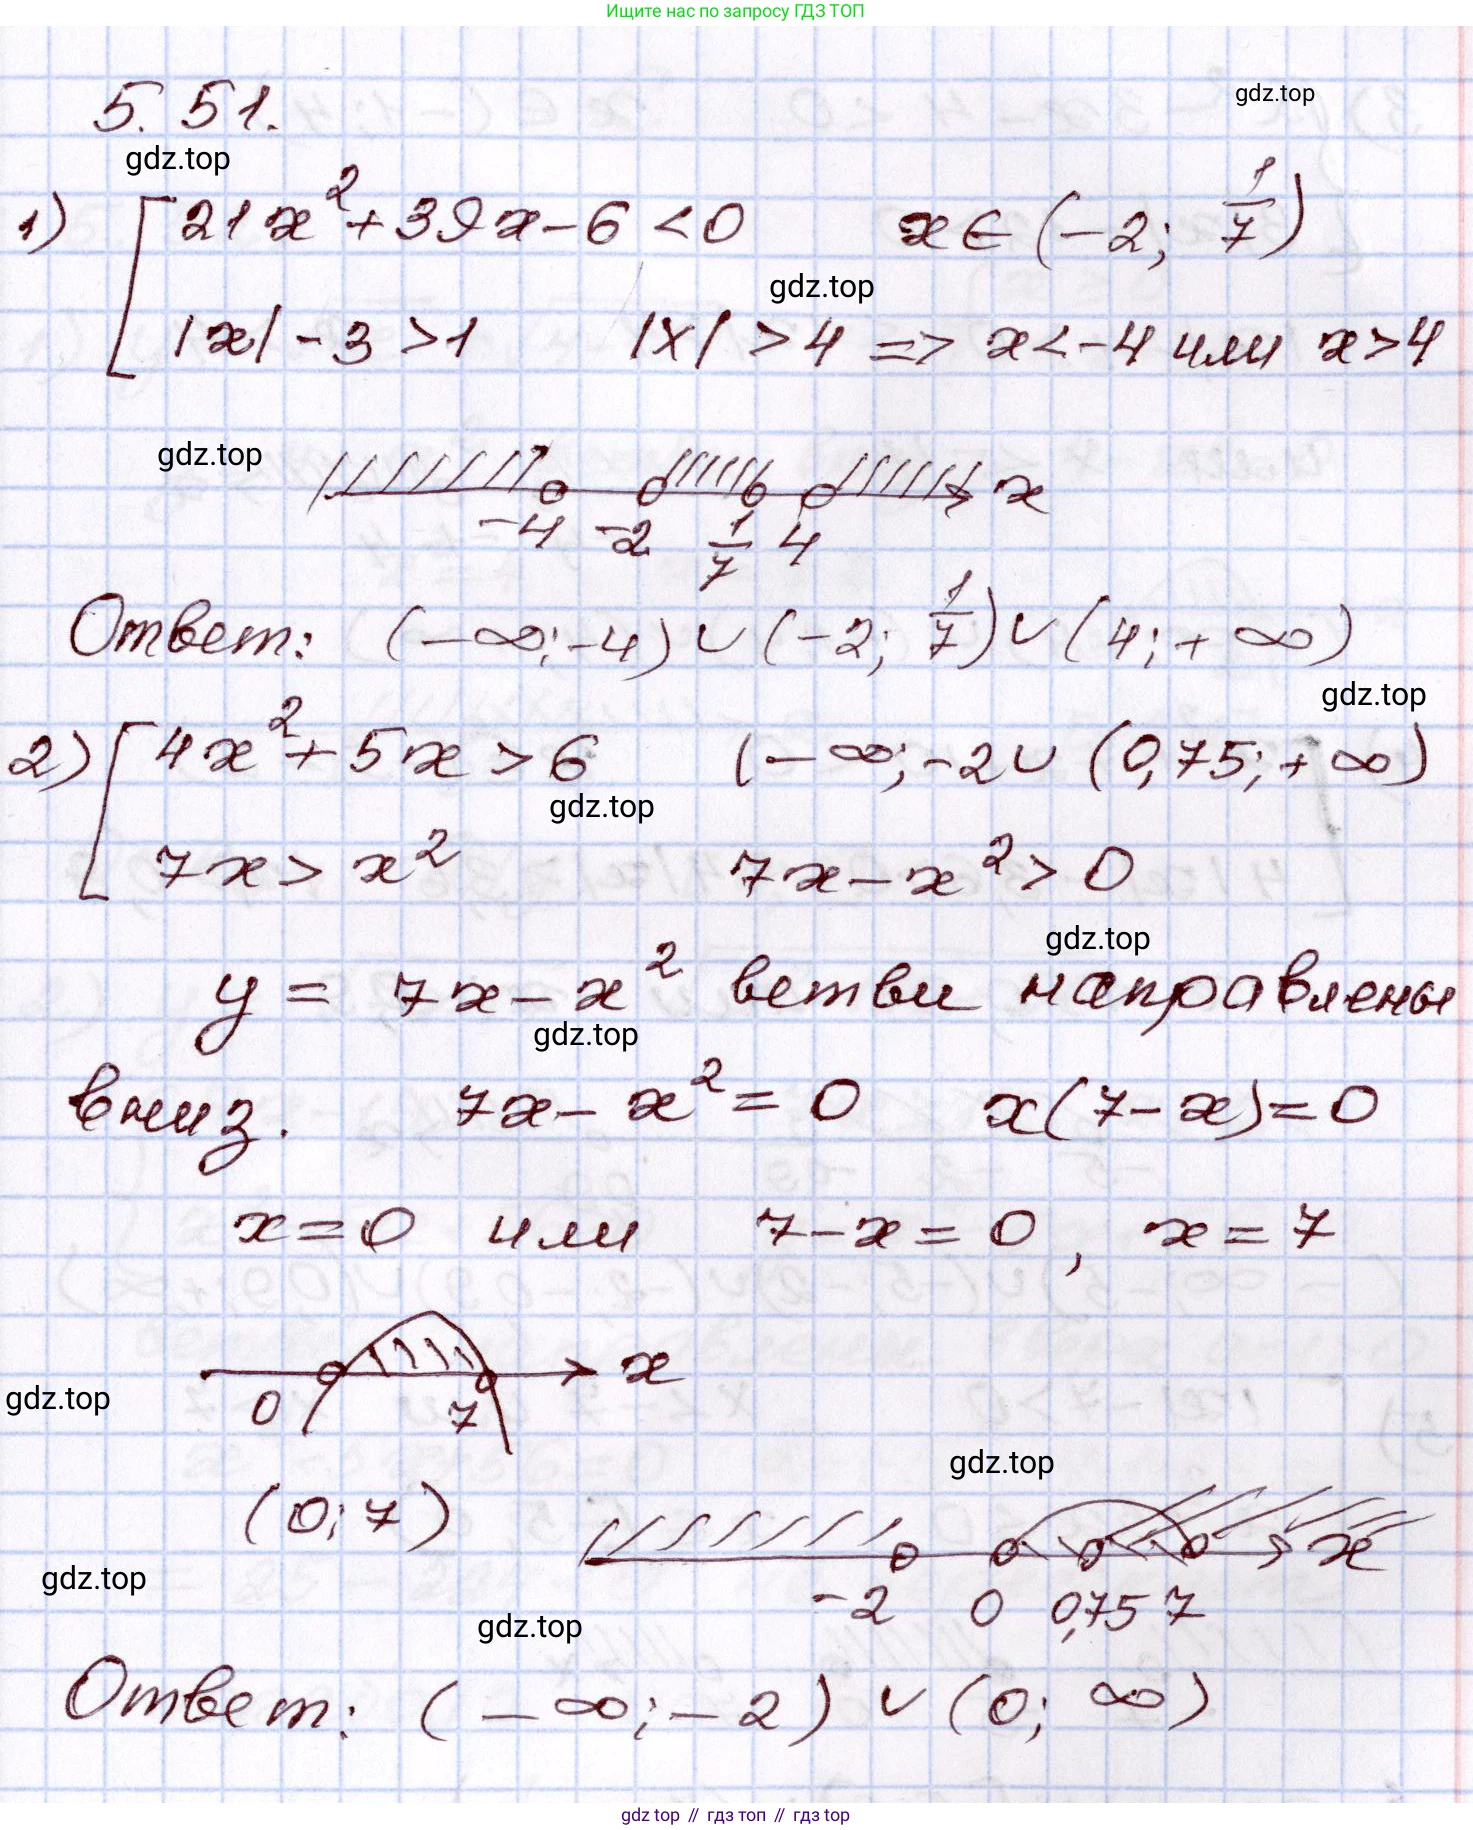 Ищите нас по запросу ГДЗ ТОП
gdz.top
5.51.
gdz.top
1) [ 21x² + 39x - 6 < 0   x ∈ (-2; 1/7)
gdz.top
|x| - 3 > 1   |x| > 4 => x < -4 или x > 4
gdz.top
x
-4 -2 1/7 4
Ответ: (-∞; -4) ∪ (-2; 1/7) ∪ (4; +∞)
gdz.top
2) [ 4x² + 5x > 6   (-∞; -2 ∪ (0,75; +∞)
gdz.top
7x > x²   7x - x² > 0
gdz.top
y = 7x - x² ветви направлены
gdz.top
вниз. 7x - x² = 0   x(7 - x) = 0
x = 0 или 7 - x = 0, x = 7
x
gdz.top
0 7
gdz.top
(0; 7)
x
gdz.top
-2 0 0,75 7
gdz.top
Ответ: (-∞; -2) ∪ (0; ∞)
gdz top // гдз топ // гдз top